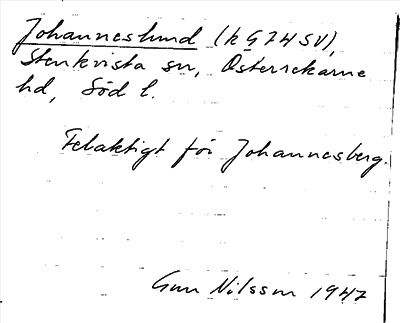 Johanneslund (k G7H SV),
Stenkvista sn, Österrekarne
hd, Söd l.
Felaktigt för Johannesberg.
Gun Nilsson 1947